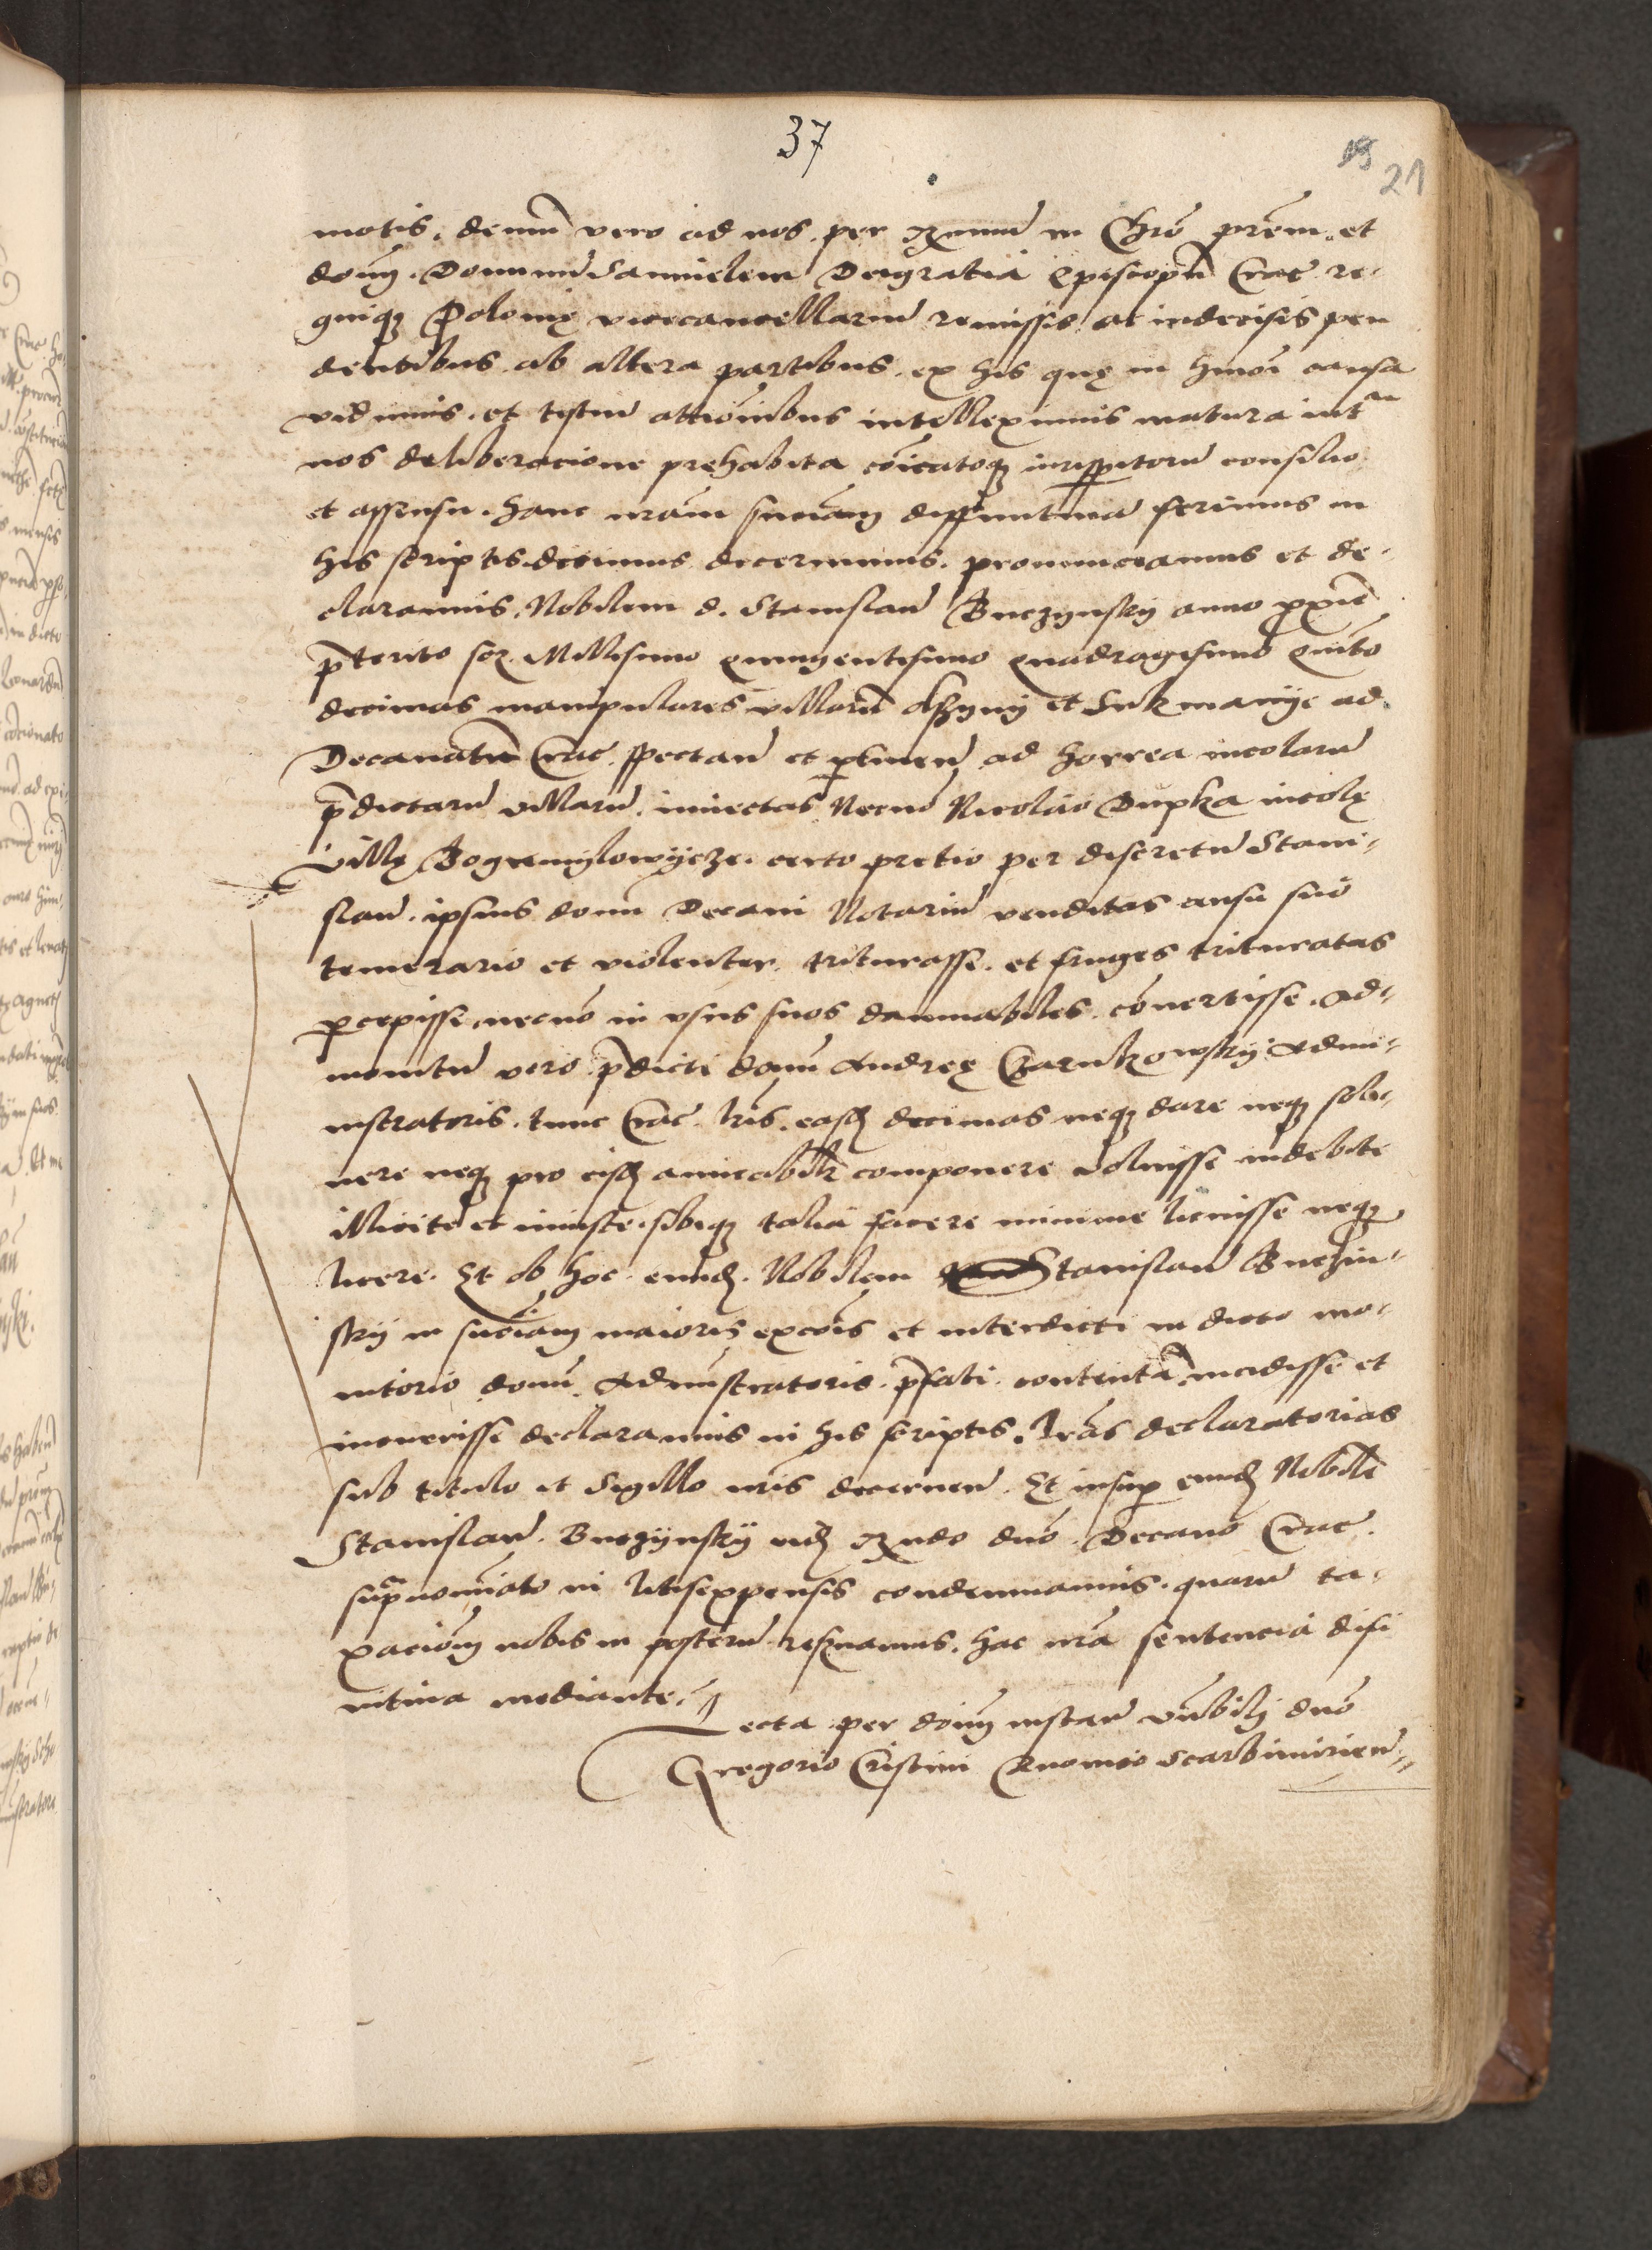 37
19
21
motis, demũ vero ad nos per Rx̃mum in Chro prẽm et
dom̃ Dominũ Samuelem Dei gratia Episcopũ Crac̃ re-
gniq₃ Polonię vicecancellariũ remissis at indecisis pen
dentibus ab altera partibus, ex his quę in hmõi causa
vidimus, et testiũ attõnibus intelleximus matura int̃
nos deliberacione prehabita cõicatoq₃ iurisperitorũ consilio
et assensu, hanc nr̃am sn̄iam diffinitiuã ferimus in
his scriptis, dicimus decernimus, pronunciamus et de-
claramus, Nobilem d. Stanislaũ Buczynsky anno proxime
p̃terito scz. Millesimo quingentesimo quadragesimo quĩto
decimas manipulares villarũ et Sukmanÿe ad
Decanatũ Crac̃ spectañ et p̱tineñ ad horrea incolarũ
p̃dictarũ villarũ, inuectas, Necnõ Nicolao Dupka incolę
villę Bogumylowÿcze, certo pretio per discretũ Stani-
slaũ, ipsius domĩ Decani Notariũ venditas ausu suo
temerario et violenter, triturasse, et fruges trituratas
p̱cepisse, necnõ in vsus suos damnabiles, cõuertisse, ad-
monitũ vero p̃dicti domĩ Andreę Czarnkowsky Admi-
nistratoris, tunc Crac̃, easd̃ decimas neq₃ dare neq₃ solu-
uere neq₃ pro eisd̃ amicabilĩr componere voluisse indebite
illicite et iniuste, sibiq₃ talia facere minime licuisse neq₃
licere. Et ob hoc, eund̃. Nobilem Stanislaũ Buczin-
sky in sn̄iam maioris excõis et interdicti in dicto mo-
nitorio domĩ Administratoris, p̃fati, contentã, incidisse et
incurrisse declaramus in his scriptis, lr̃as declaratorias
sub titulo et Sigillo nr̃is decerneñ. Et insup̱ eund̃ Nobilẽ
Stanislaũ. Buczÿnsky eid̃ Rx̃ndo dn̄o. Decano Crac̃.
sup̃nomĩato in litisexpensis condemnamus, quarũ ta-
xaciom̃ nobis in posterũ reseruamus, hac nr̃a sentencia difi
nitiua mediante.
Lecta per dom̃ instañ vñbili dn̄o
Gregorio Cristini Canonico Scarbimirieñ